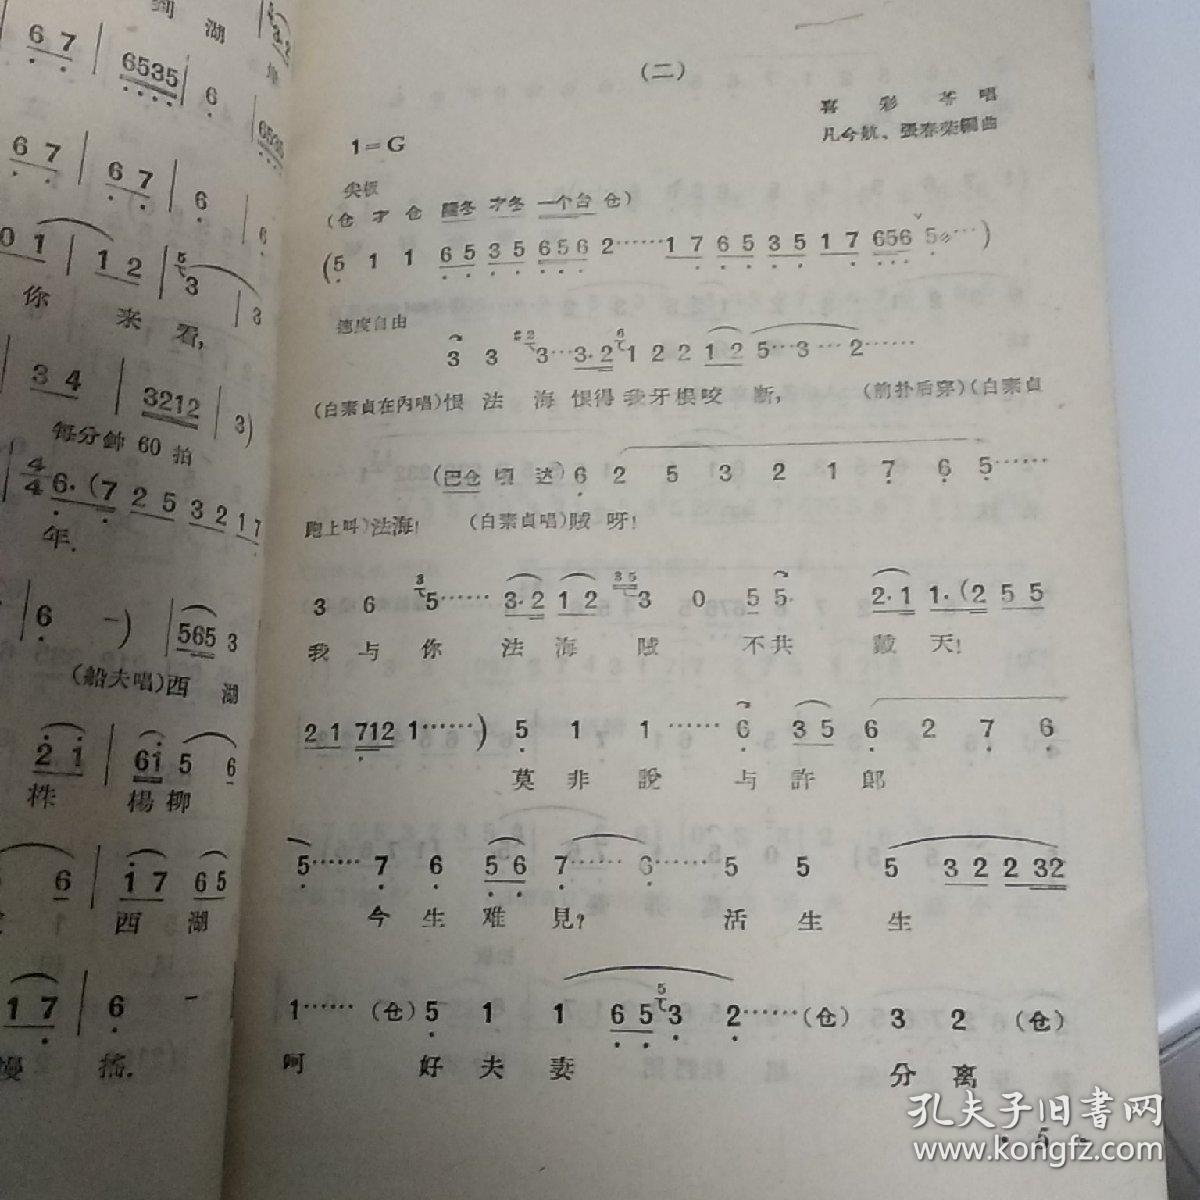 到 湖
6 7 | 6535 | 6
6 7 | 6 7 | 6
0 1 | 1 2 | 3 | 3
你 来 看,
3 4 | 3212 | 3)
每分鈡 60 拍
4/4 6· (7 2 5 3 2 1 7
年.
6 -) | 565 3
(船夫唱)西 湖
2 1 | 61 5 6
株 楊柳
6 | 1 7 6 5
西 湖
1 7 | 6 -
慢 搖.
(二)
喜 彩 苓 唱
凡今航、張春荣編曲
1=G
尖板
(仓 才 仓 隆冬 才冬 一个台 仓)
(5 1 1 6 5 3 5 6 5 6 2……1 7 6 5 3 5 1 7 656 5…)
速度自由
3 3 3…3·2 1 2 2 1 2 5…3…2……
(白素貞在內唱)恨 法 海 恨得 我牙根咬 断, (前扑后穿)(白素貞
(巴仓 頃 迏) 6 2 5 3 2 1 7 6 5……
跑上叫)法海! (白素貞唱)賊 呀!
3 6 5…… 3·2 1 2 3 0 5 5· 2·1 1·(2 5 5
我 与 你 法 海 賊 不共 戴 天!
2 1 712 1……) 5 1 1…… 6 3 5 6 2 7 6
莫 非 說 与 許 郎
5…… 7 6 5 6 7…… 6…… 5 5 5 3 2 2 32
今 生 难 見? 活 生 生
1…… (仓) 5 1 1 6 5 3 2……(仓) 3 2 (仓)
呵 好 夫 妻 分 离
· 5 ·
孔夫子旧書网
www.kongfz.com